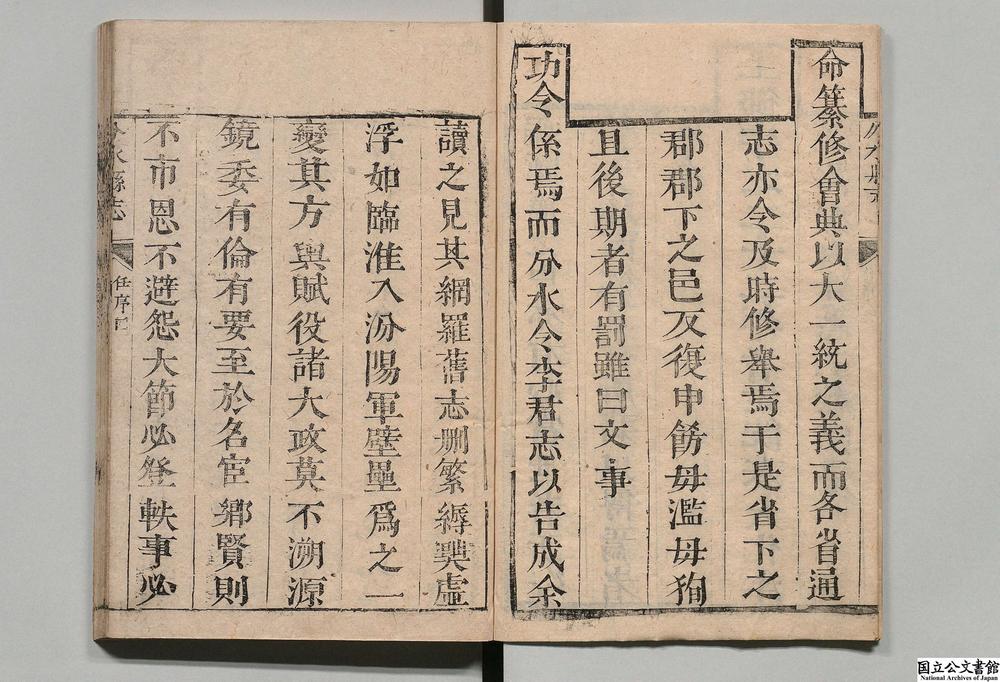 命纂修會典以大一統之義而各省通
志亦令及時修舉焉于是省下之
郡郡下之邑反復申飭毋濫毋狥
且後期者有罰雖曰文事
功令係焉而分水令李君志以告成余
讀之見其網羅舊志刪繁縟與虛
浮如臨淮入汾陽軍壁壘爲之一
變其方輿賦役諸大政莫不溯源
鏡委有倫有要至於名宦鄉賢則
不市恩不避怨大節必登軼事必
分水縣志
任序
国立公文書館
National Archives of Japan